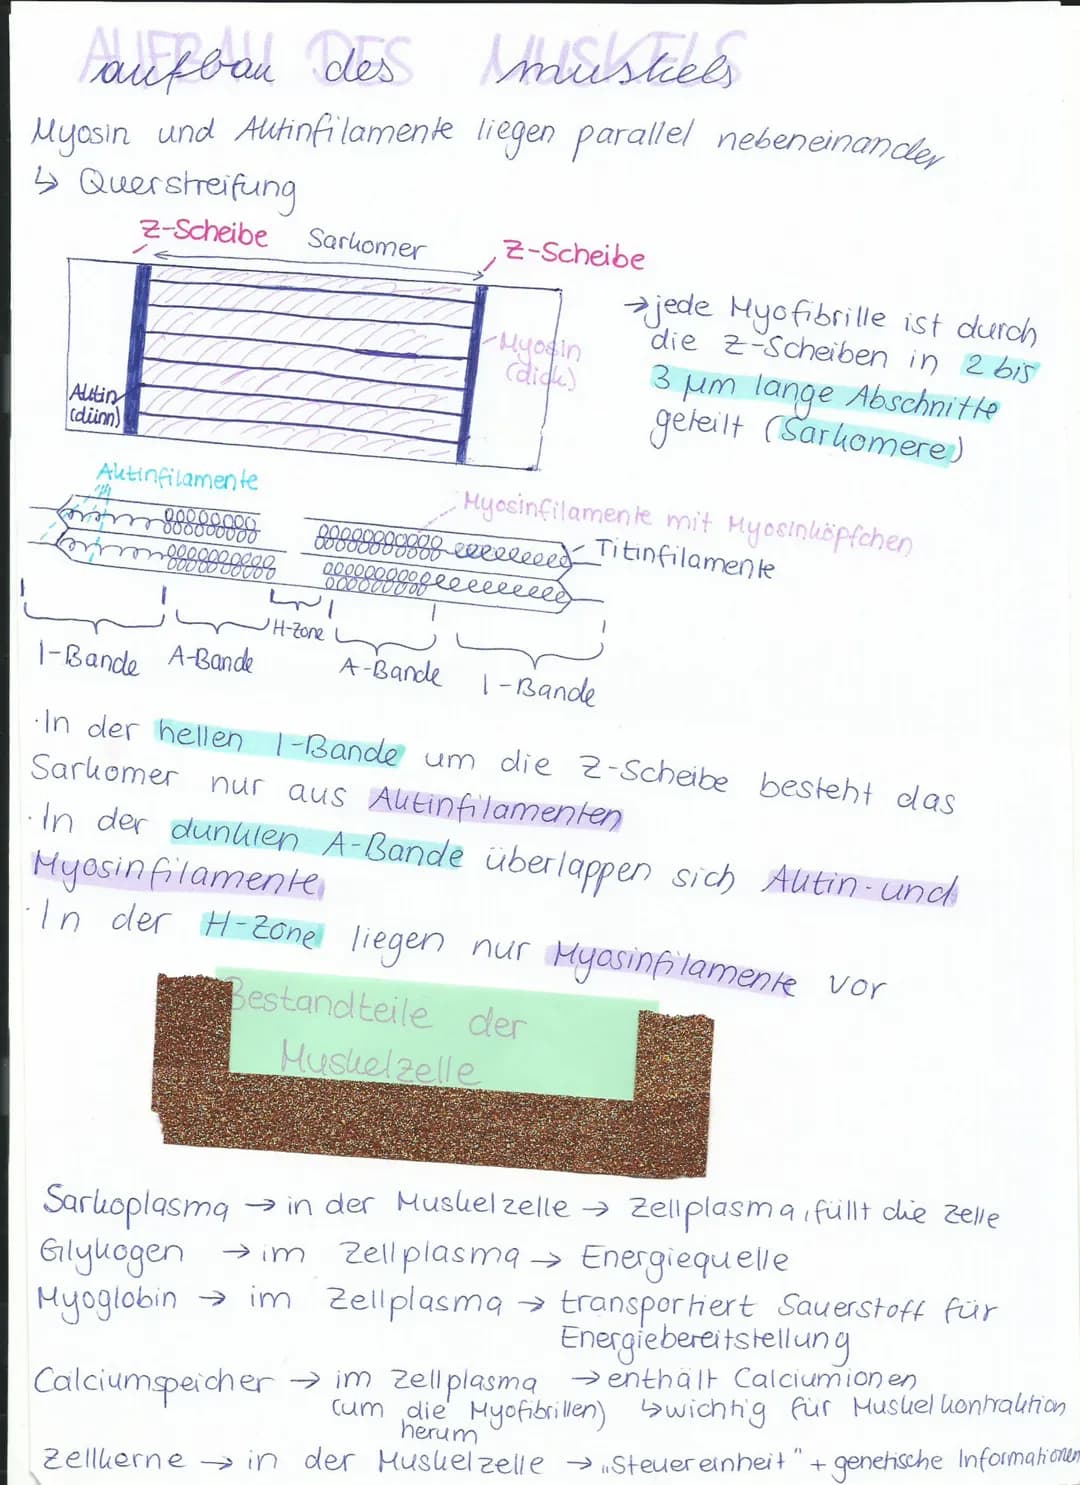 AUFBAU DES MUSKELS
aufbau des muskels
Myosin und Aktinfilamente liegen parallel nebeneinander
↳ Querstreifung
Z-Scheibe Sarkomer Z-Scheibe
→ jede Myofibrille ist durch
die Z-Scheiben in 2 bis
3 µm lange Abschnitte
geteilt (Sarkomere)
Myosin
(dick)
Aktin
(dünn)
Aktinfilamente
Myosinfilamente mit Myosinköpfchen
Titinfilamente
H-Zone
I-Bande A-Bande A-Bande I-Bande
·In der hellen I-Bande um die Z-Scheibe besteht das
Sarkomer nur aus Aktinfilamenten
·In der dunklen A-Bande überlappen sich Aktin- und
Myosinfilamente
·In der H-Zone liegen nur Myosinfilamente vor
Bestandteile der
Muskelzelle
Sarkoplasma → in der Muskelzelle → Zellplasma, füllt die Zelle
Glykogen → im Zellplasma → Energiequelle
Myoglobin → im Zellplasma → transportiert Sauerstoff für
Energiebereitstellung
Calciumspeicher → im Zellplasma → enthält Calciumionen
(um die Myofibrillen) ↳ wichtig für Muskelkontraktion
herum
Zellkerne → in der Muskelzelle → „Steuereinheit" + genetische Informationen